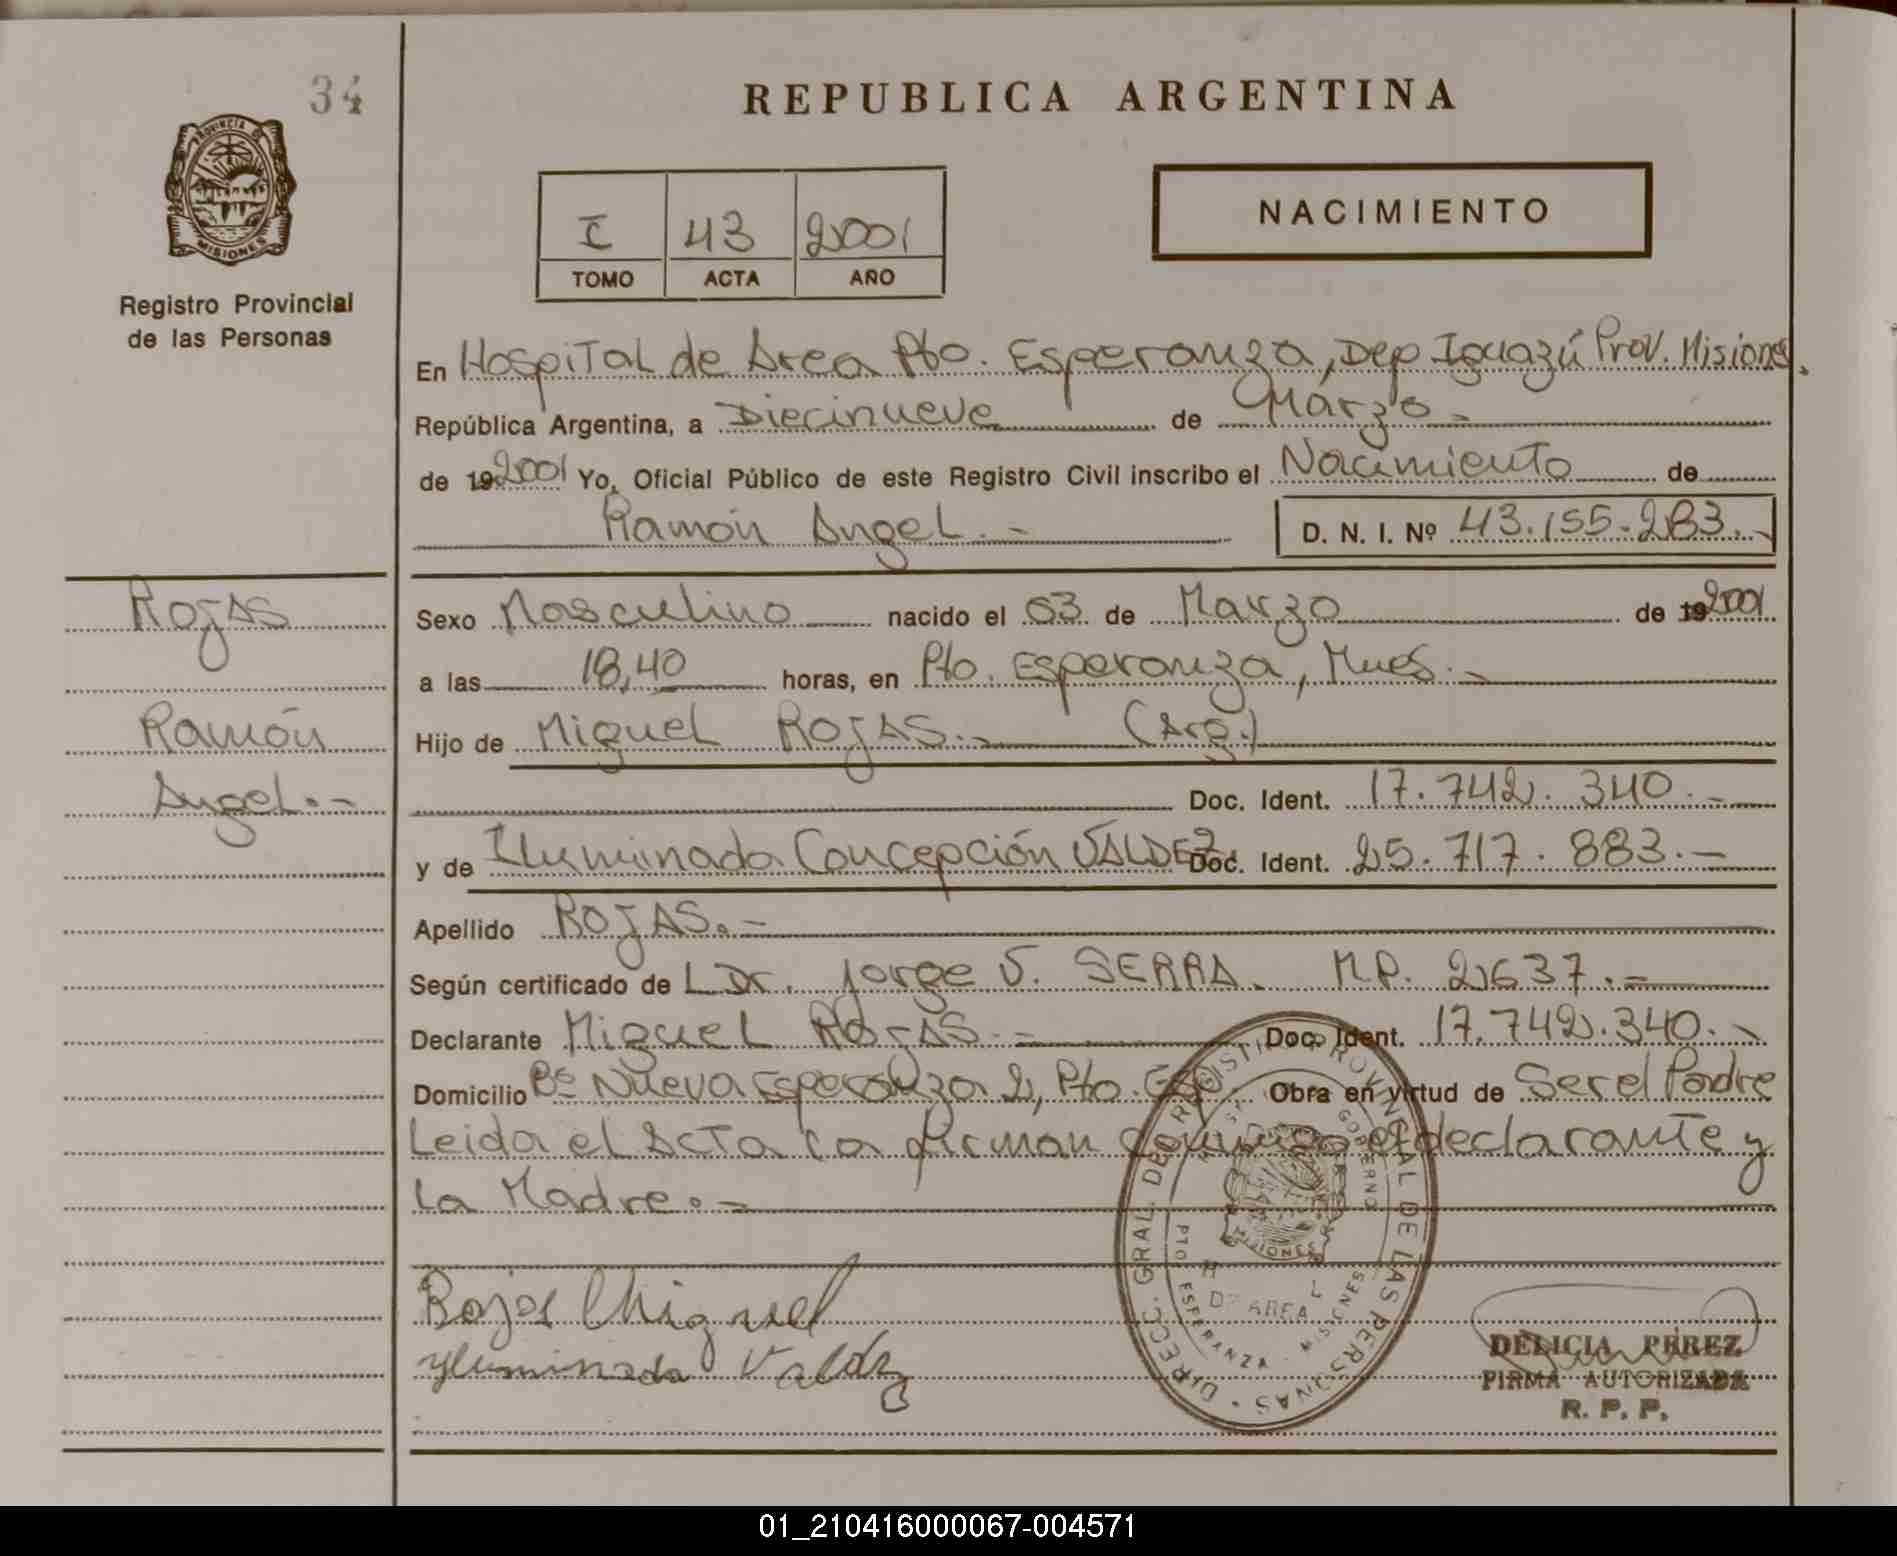 34
REPUBLICA ARGENTINA
PROVINCIA DE
MISIONES
Registro Provincial
de las Personas
I 43 2001
TOMO ACTA AÑO
NACIMIENTO
En Hospital de Area Pto. Esperanza, Dep Iguazú Prov. Misiones.
República Argentina, a Diecinueve de Marzo.-
de 19 2001 Yo, Oficial Público de este Registro Civil inscribo el Nacimiento de
Ramón Angel.-
D. N. I. Nº 43.155.283.-
ROJAS
Ramón
Angel.-
Sexo Masculino nacido el 03 de Marzo de 19 2001
a las 18,40 horas, en Pto. Esperanza, Mnes.-
Hijo de Miguel ROJAS.- (Arg.)
Doc. Ident. 17.742.340.-
y de Iluminada Concepción VALDEZ. Doc. Ident. 25.717.883.-
Apellido ROJAS.-
Según certificado de Dr. Jorge V. SERRA. M.P. 2637.-
Declarante Miguel ROJAS.- Doc. Ident. 17.742.340.-
Domicilio Bº Nueva Esperanza 2, Pto. Esp. Obra en virtud de Ser el Padre
Leida el Acta la firman conmigo el declarante y
la Madre.-
Rojas Miguel
yluminada Valdz
DIRECC. GRAL. DE REGISTRO PROVINCIAL DE LAS PERSONAS
GOBIERNO
MISIONES
DE AREA
PTO. ESPERANZA - MISIONES
DELICIA PEREZ
FIRMA AUTORIZADA
R. P. P.
01_210416000067-004571